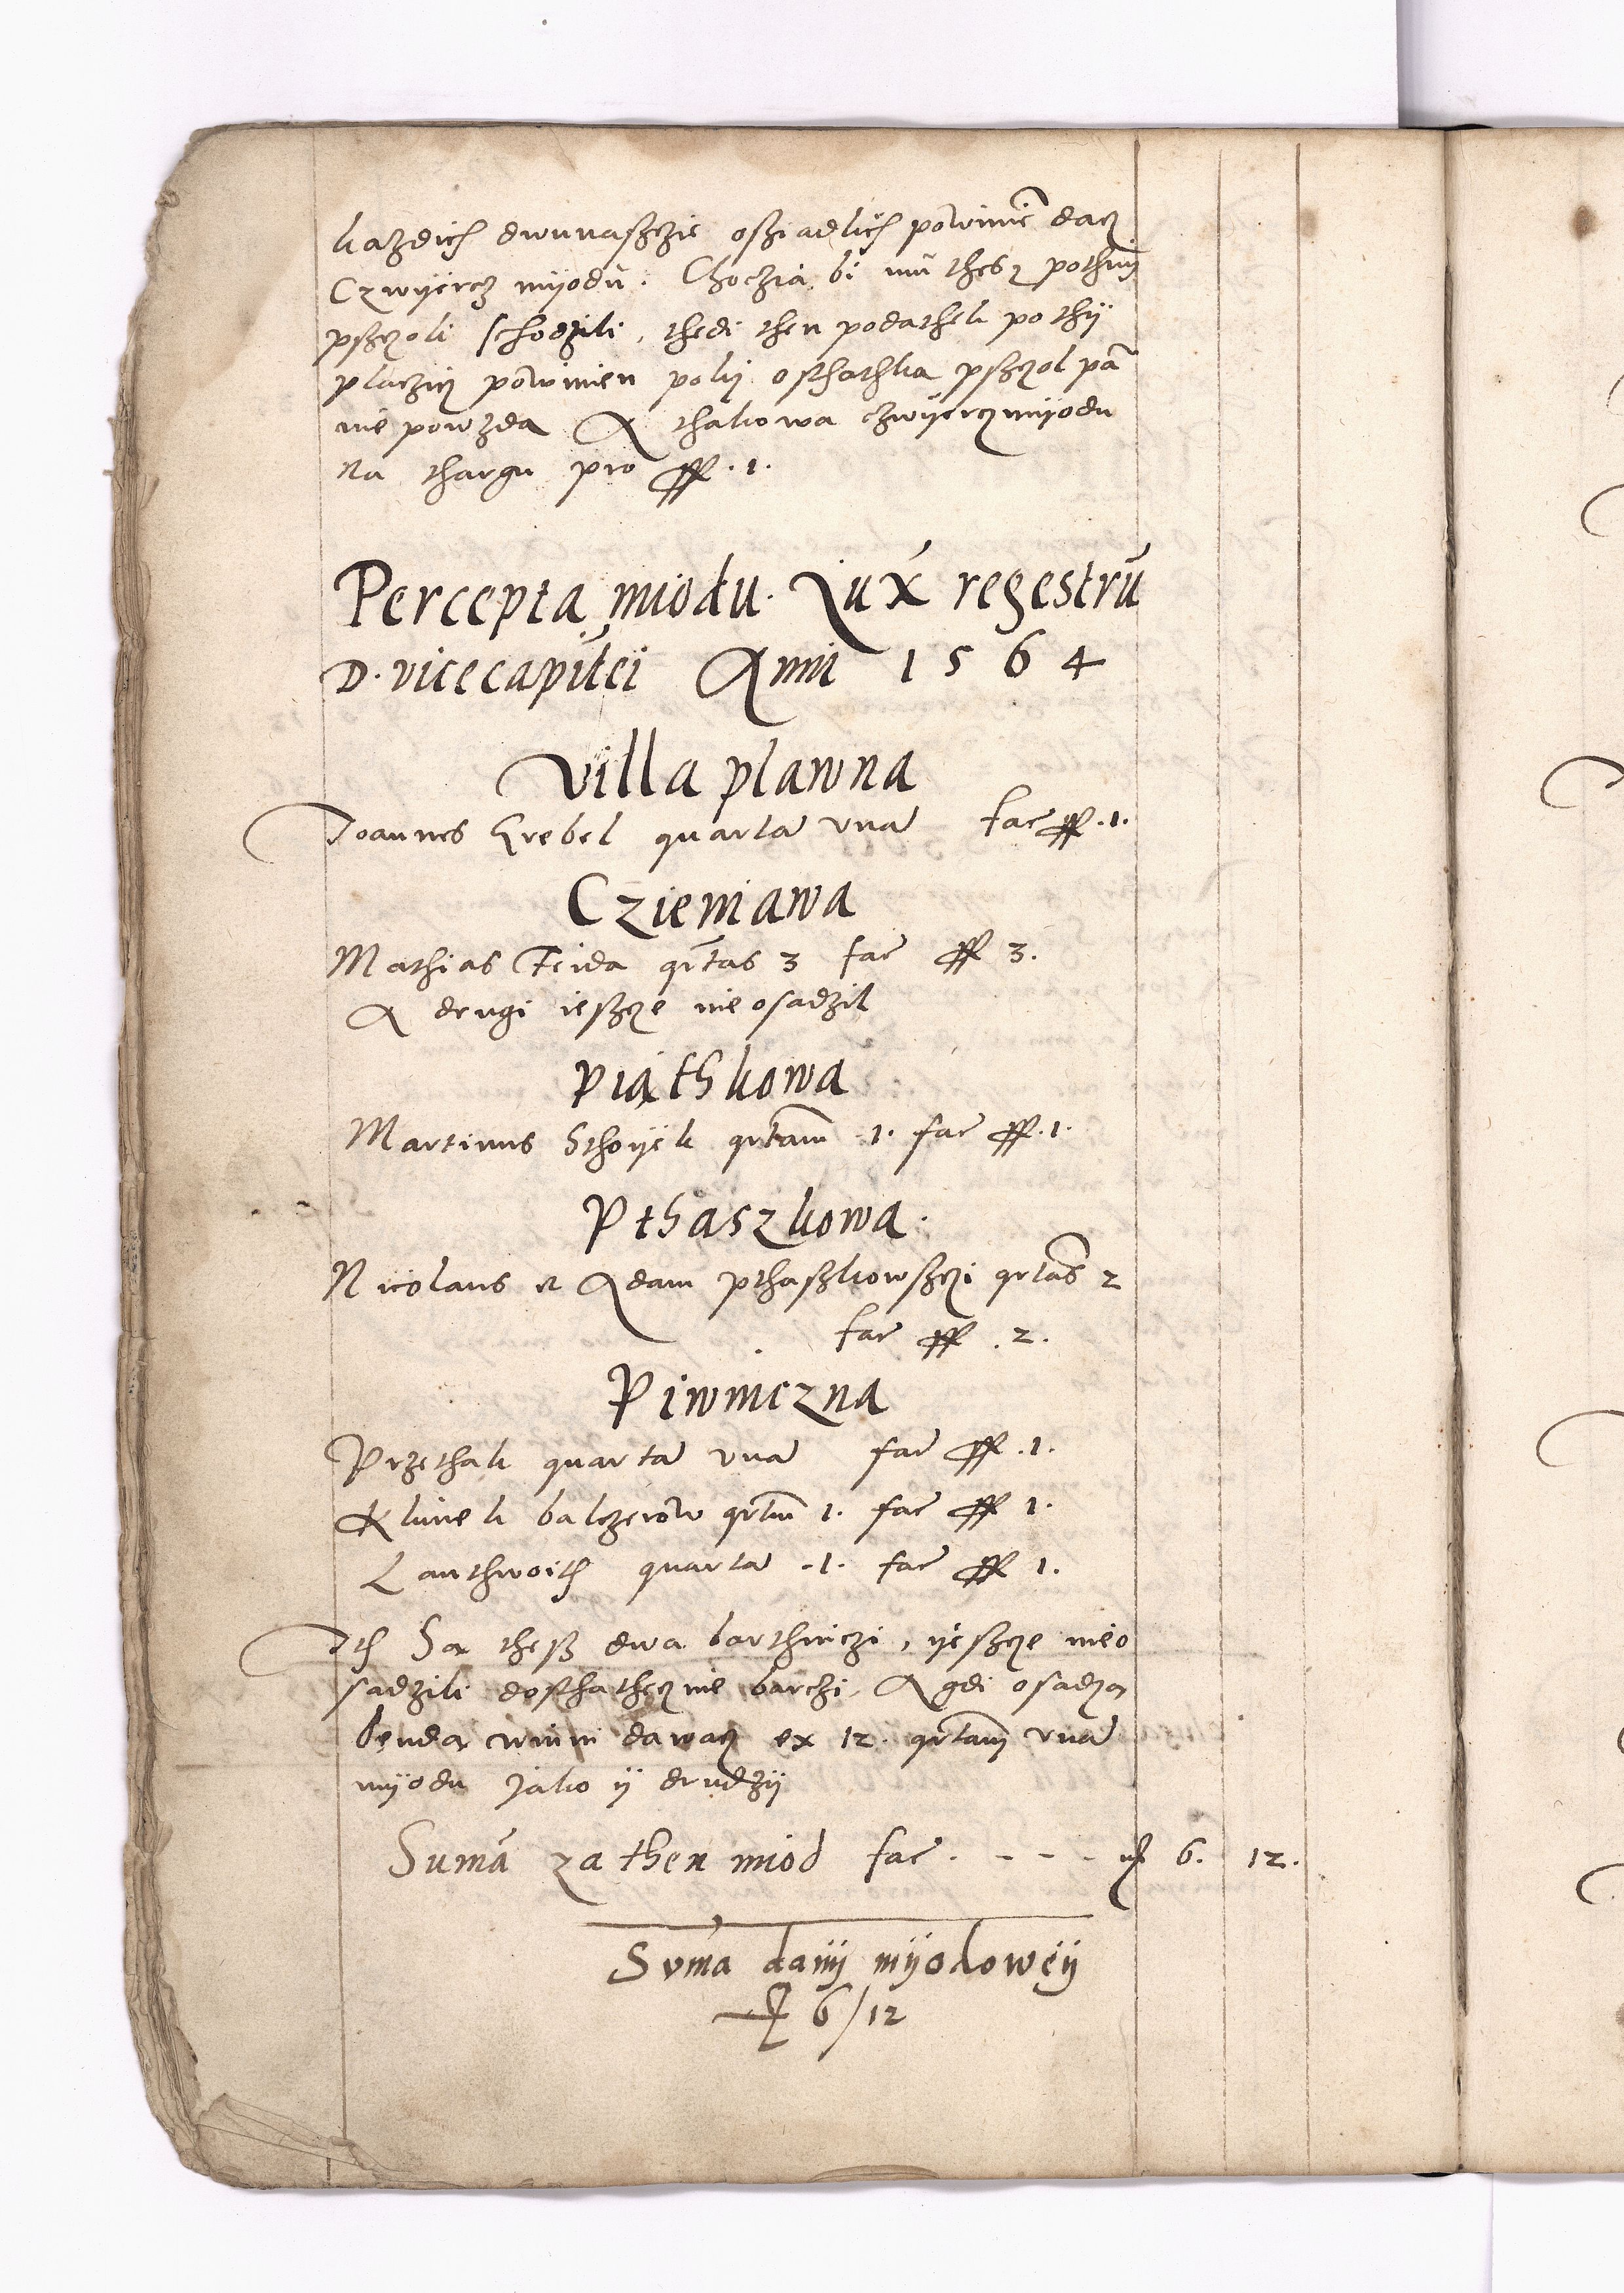 kazdich dwunasczie osziadlich powinne dacz
Czwyercz myodu. Choczia bi mu thesz pothim
psczoli schodzili, thedi then podathek po thij
placzicz powinien polij osthathka psczol pa
nie powzda A thakowa czwyercz myodu
na thargu pro ff. 1.
Percepta miodu. Jux regestrū
D. vicecapitei Anni 1564
Villa plawna
Joannes Grebel quarta una fac ff. 1.
Czieniawa
Mathias Feida qrtas 3 fac ff 3.
A drugi iescze nie osadzil
Piąthkowa
Martinus Sthoyek qrtam 1. fac ff. 1.
Pthaszkowa.
Nicolaus et Adam pthaszkowsczi qrtas 2
fac ff. 2.
Piwniczna
Przethak quarta una fac ff. 1.
Klimek balczerow qrtm 1. fac ff 1.
Lanthwoith quarta .1. fac ff 1.
Ith Sa thesz dwa barthniczi, yescze nieo
sadzili dosthathecznie barchi, A gdi osadza
benda winni dawacz ex 12. qrtam una
myodu Jako ij drudzij
Sumā za then miod fac. - - - 6. 12.
Suma danij myodoweij
6/12